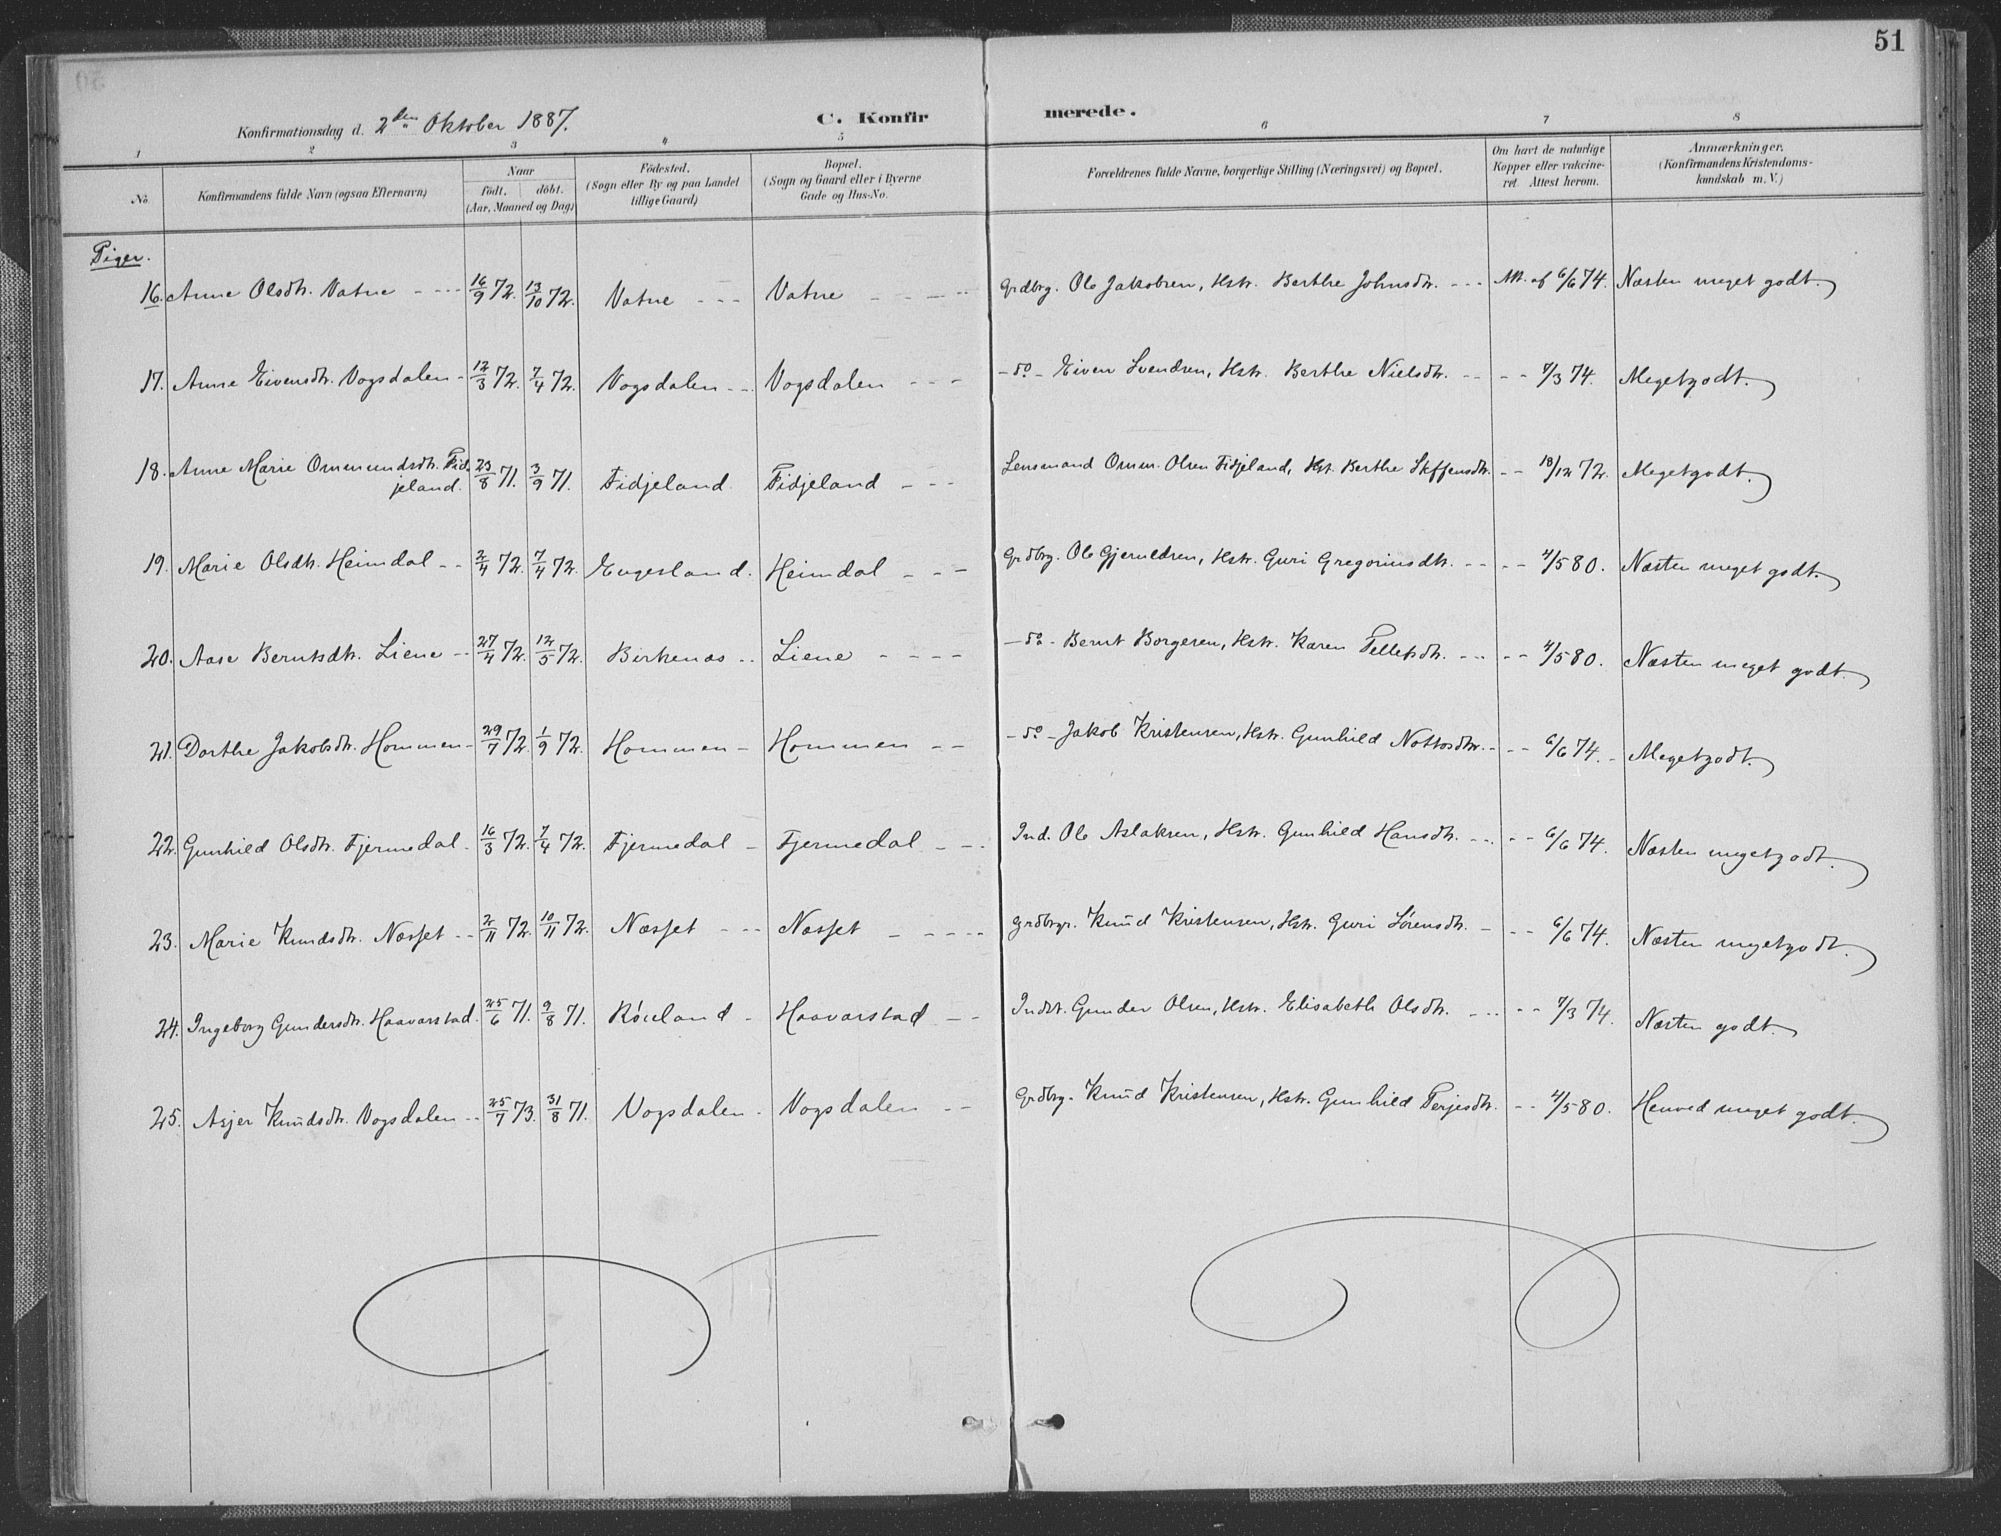 51
Konfirmationsdag d. 2den Oktober 1887. C. Konfirmerede.
1 2 3 4 5 6 7 8
No. Konfirmandens fulde Navn (ogsaa Efternavn) Naar født. døbt. (Aar, Maaned og Dag) Fødested. (Sogn eller By og paa Landet tillige Gaard) Bopæl. (Sogn og Gaard eller i Byerne Gade og Hus-No. Forældrenes fulde Navne, borgerlige Stilling (Næringsvei) og Bopæl. Om havt de naturlige Kopper eller vakcineret. Attest herom. Anmærkninger. (Konfirmandens Kristendomskundskab m. V.)
Piger.
16. Anne Olsdtr. Vatne - - - 16/9 72. 13/10 72. Vatne - - - Vatne - - - - Grdbrg. Ole Jakobsen, Hstr. Berthe Johnsdtr. - - - Att. af 6/6 74. Næsten meget godt.
17. Anne Eivensdtr. Vogsdalen - 12/3 72. 7/4 72. Vogsdalen - - Vogsdalen - - - - do - Eiven Svendsen, Hstr. Berthe Nielsdtr. - - - - 7/3 74. Meget godt.
18. Anne Marie Ommundsdtr. Fid-
jeland. 23/8 71. 3/9 71. Fidjeland. Fidjeland - - - Lensmand Omm. Olsen Fidjeland, Hst. Berthe Steffensdtr. - - 18/12 72. Meget godt.
19. Marie Olsdtr. Heimdal - - 2/4 72. 7/4 72. Engesland. Heimdal - - - Grdbrg. Ole Gjeruldsen, Hstr. Guri Gregoriusdtr. - - - - 4/5 80. Næsten meget godt.
20. Aase Berntsdtr. Liene - - 27/4 72. 12/5 72. Birkenæs - - Liene - - - - - do - Bernt Borgesen, Hstr. Karen Tellefsdtr. - - - - 4/5 80. Næsten meget godt.
21. Dorthe Jakobsdtr. Hommen - 29/7 72. 1/9 72. Hommen - Hommen - - - do - Jakob Kristensen, Hstr. Gunhild Nottosdtr. - - - 6/6 74. - Meget godt.
22. Gunhild Olsdtr. Fjermedal - 16/3 72. 7/4 72. Fjermedal - Fjermedal - - - Ind. Ole Aslaksen, Hstr. Gunhild Hansdtr. - - - - 6/6 74. Næsten meget godt.
23. Marie Knudsdtr. Næsset - - 2/11 72. 10/11 72. Næsset - - - Næsset - - - - Grdbrgr. Knud Kristensen, Hstr. Guri Sörensdtr. - - - 6/6 74. Næsten meget godt.
24. Ingeborg Gundersdtr. Haavarstad. 25/6 71. 9/8 71. Röiseland - Haavarstad - - Indst. Gunder Olsen, Hstr. Elisabeth Olsdtr. - - - - 7/3 74. Næsten godt.
25. Asjer Knudsdtr. Vogsdalen - - 25/7 73. 31/8 71. Vogsdalen - Vogsdalen - - Grdbrg. Knud Kristensen, Hstr. Gunhild Terjesdtr. - - 4/5 80. Henved meget godt.